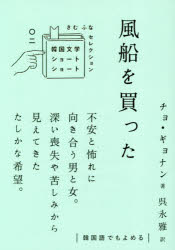 きむ ふな セレクション
韓国文学
ショート
ショート
風船を買った
チョ・ギョナン 著
呉永雅 訳
不安と怖れに
向き合う男と女。
深い喪失や苦しみから
見えてきた
たしかな希望。
韓国語でもよめる